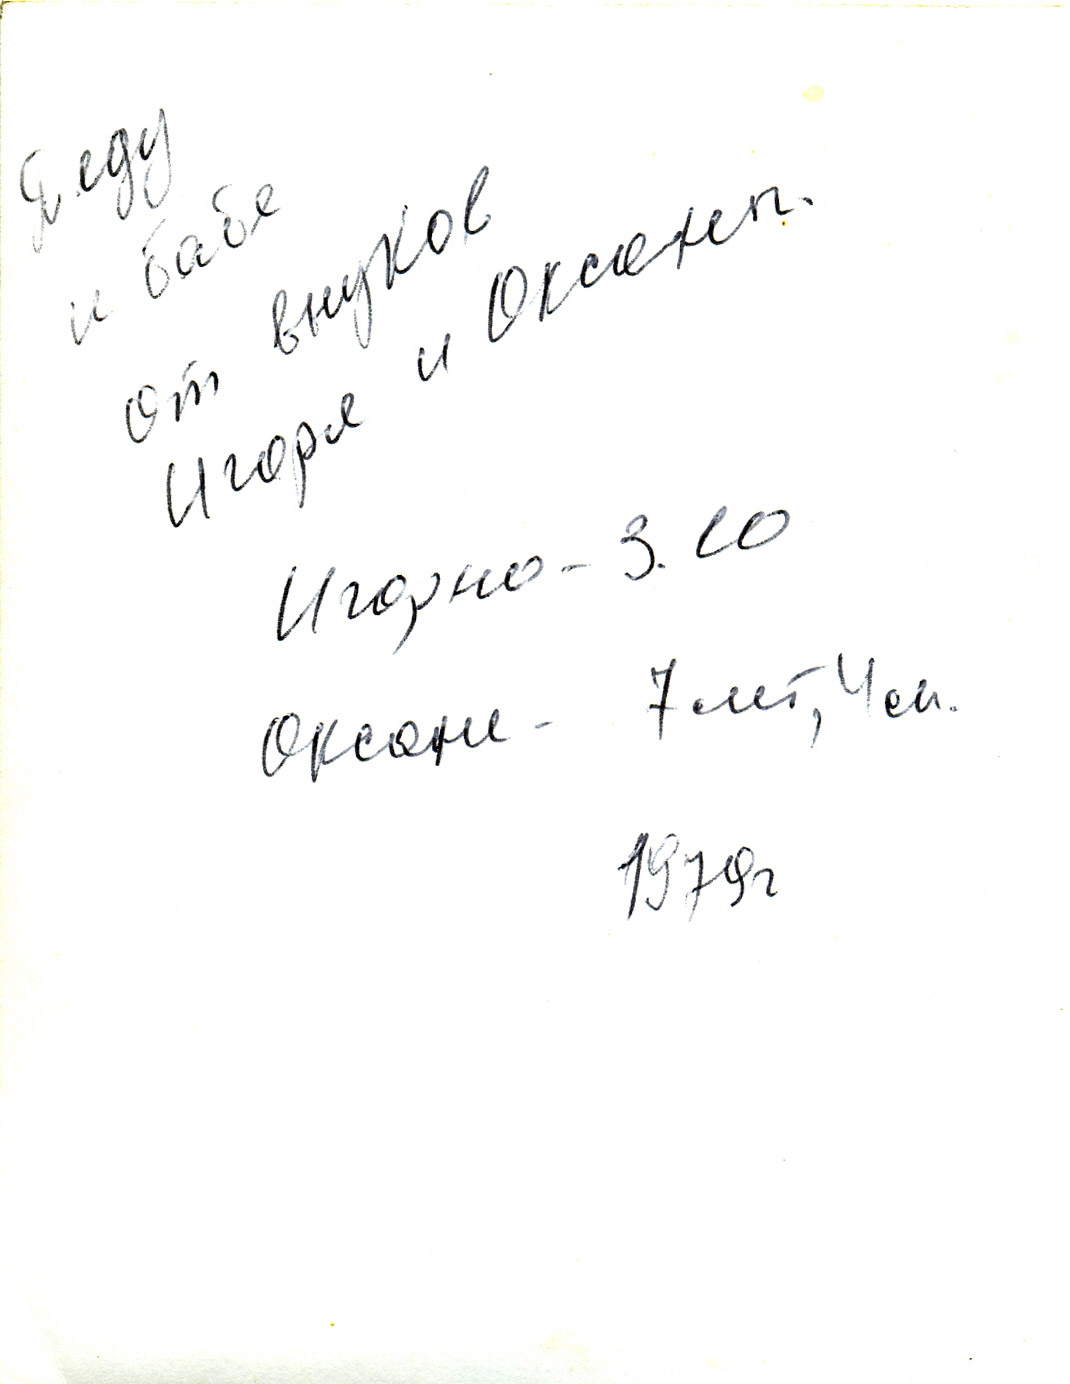 Деду
и бабе
от внуков
Игоря и Оксаны.
Игорю - 3.10
Оксане - 7 лет, 4 м.
1979г